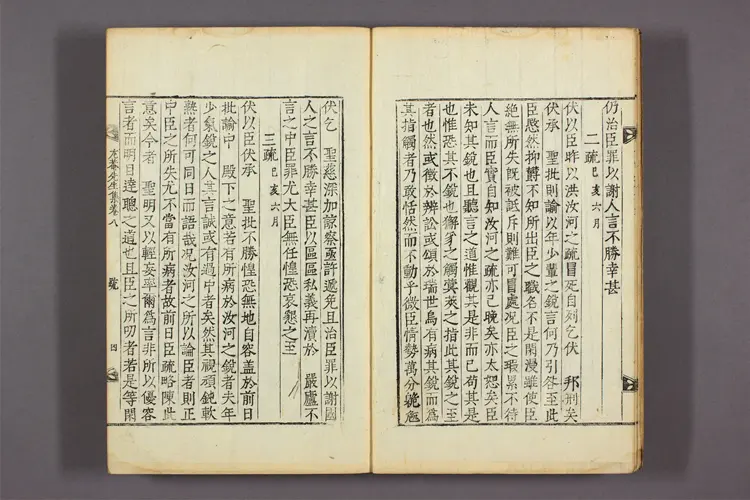 仍治臣罪以謝人言不勝幸甚
二疏 己亥六月
伏以臣昨以洪汝河之疏冒死自列乞伏 邦刑矣
伏承 聖批則諭以年少輩之銳言何乃引咎至此
臣愍然抑欝不知所出臣之職名不是閑漫雖使臣
絶無所失旣被詆斥則難可冒處况臣之瑕累不待
人言而臣實自知汝河之疏亦已晚矣亦太恕矣臣
未知其銳也且聽言之道惟觀其是非而已苟其是
也惟恐其不銳也獬豸之觸蓂莢之指此其銳之至
者也然或徵於辨訟或頌於瑞世烏有病其銳而爲
其指觸者乃敢恬然而不動乎微臣情勢萬分
伏乞 聖慈深加諒察亟許遞免且治臣罪以謝國
人之言不勝幸甚臣以區區私義再瀆於 嚴廬不
言之中臣罪尤大臣無任惶恐哀懇之至
三疏 己亥六月
伏以臣伏承 聖批不勝惶恐無地自容盖於前日
批諭中 殿下之意若有所病於汝河之銳者夫年
少氣銳之人其言誠或有過中者矣然其視頑鈍軟
熱者何可同日而語哉况汝河之所以論臣者則正
中臣之所失尤不當有所病者故前日臣疏略陳此
意矣今者 聖明又以輕妄率爾爲言非所以優容
言者而明目達聰之道也且臣之所叨者若是等閑
先生集卷八
疏
四